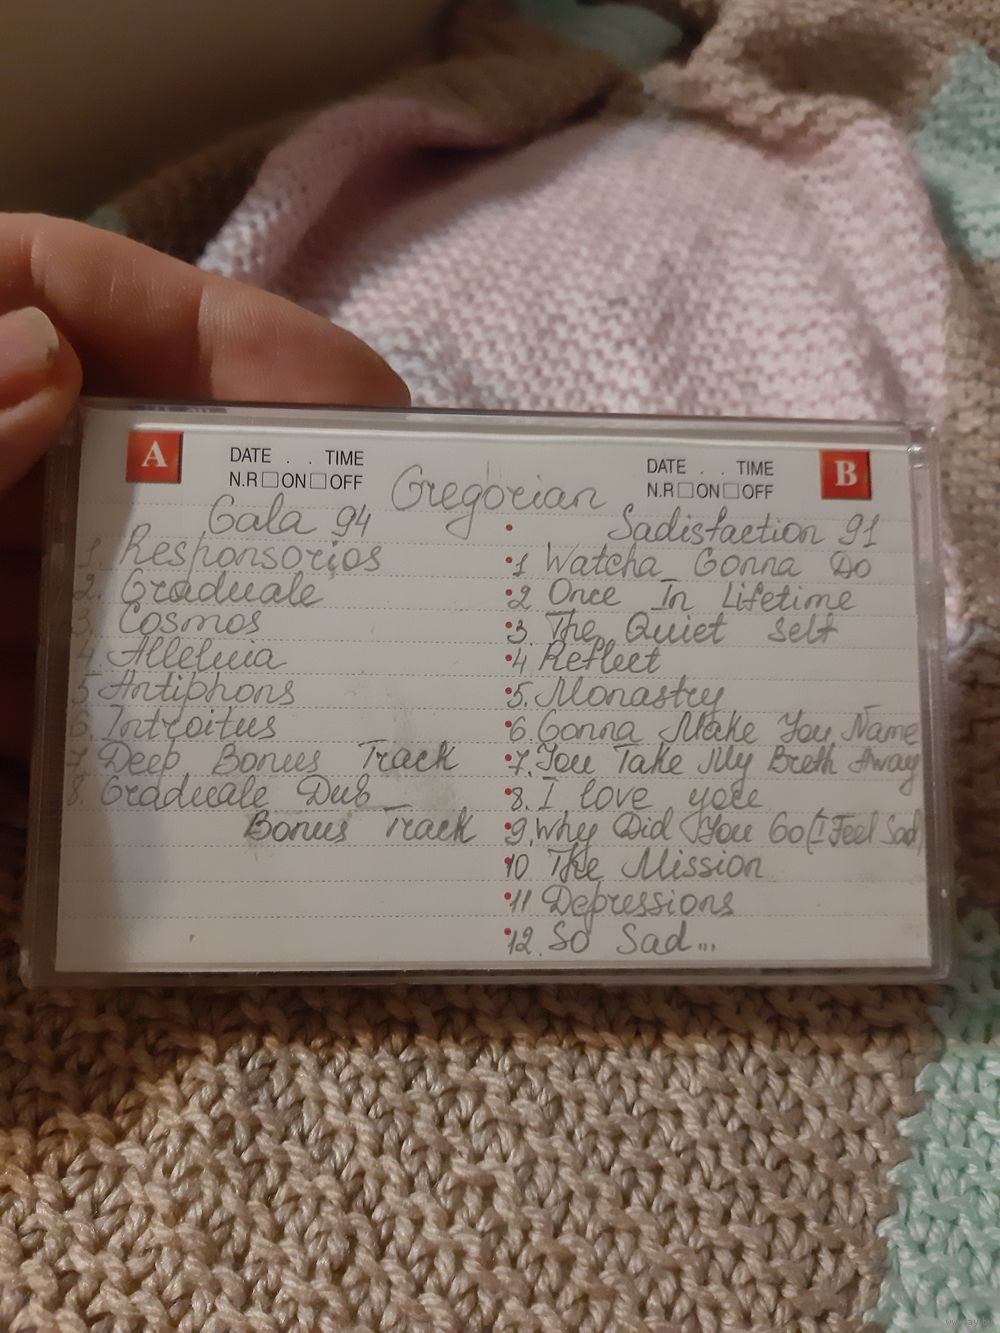 A
DATE . . TIME
N.R ON OFF
Gregorian
DATE . . TIME
N.R ON OFF
B
Gala 94
1. Responsorios
2. Graduale
3. Cosmos
4. Alleluia
5 Antiphons
6. Introitus
7 Deep Bonus Track
8. Graduale Dub
Bonus Track
Sadisfaction 91
1 Watcha Gonna Do
2 Once In Lifetime
3. The Quiet Self
4 Reflect
5. Monastry
6. Gonna Make You Name
7. You Take My Breth Away
8. I love you
9. Why Did You Go (I Feel Sad)
10 The Mission
11 Depressions
12. So Sad...